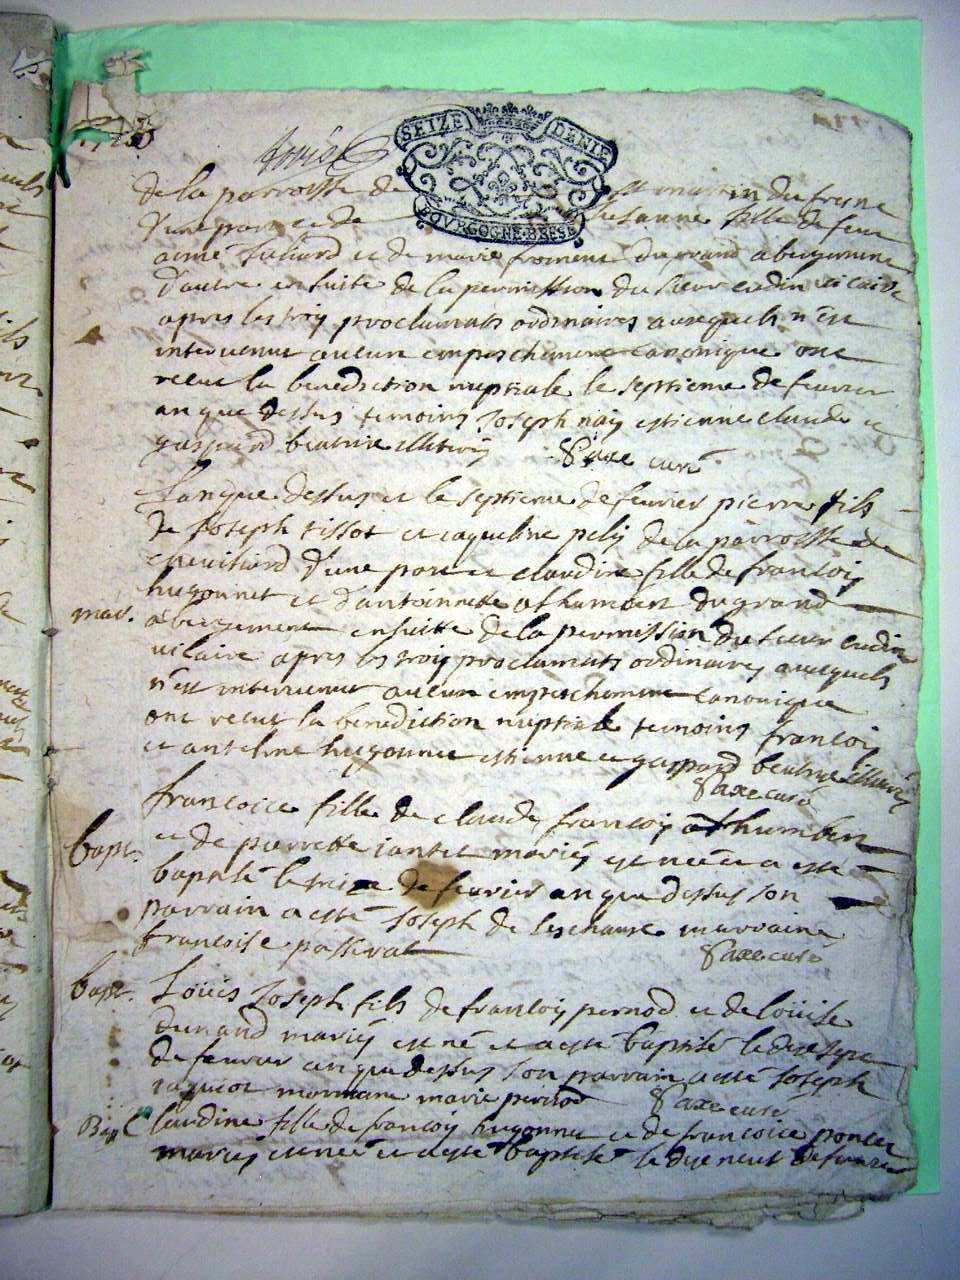 SEIZE DENIE
BOURGOGNE BRESSE
de la parroisse de st martin du fresne
d'une part et de susanne fille de feu
aimé juliard et de marie froment du grand abergement
d'autre ensuite de la permission du sieur cudin vicaire
apres les troy proclamats ordinaires ausquels n'est
intervenut aucun empeschement canonique ont
recut la benediction nuptiale le septieme de feuvrier
an que dessus temoins Joseph nay estienne claude et
gaspard beatrix illiterés Saxe curé
Lan que dessus et le septieme de feuvrier pierre fils
de Joseph tissot et jaqueline pely de la parroisse de
chevillard d'une part et claudine fille de françoy
hugonnet et d'antoinnette athumbert du grand
mar.
abergement ensuitte de la permission du sieur cudin
vicaire apres les troy proclamats ordinaires ausquels
n'est intervenut aucun empeschement canonique
ont recut la benediction nuptiale temoins françoy
et antelme hugonnet estienne et gaspard beatrix illiterés
Saxe curé
bapt.
françoise fille de claude françoy athumbert
et de pierrette jantet mariés est née et a esté
baptisé le treize de feuvrier an que dessus son
parrain a esté Joseph de leschaux marraine
françoise passerat Saxe curé
bapt.
Loüis Joseph fils de françoy pernod et de loüise
dunand mariés est né et a esté baptisé le dixsept
de feuvrier an que dessus son parrain a esté Joseph
jaquet marraine marie pernod Saxe curé
Bapt
Claudine fille de françoy hugonnet et de françoise poncet
mariés est née et a esté baptisé le dixneuf de feuvrier